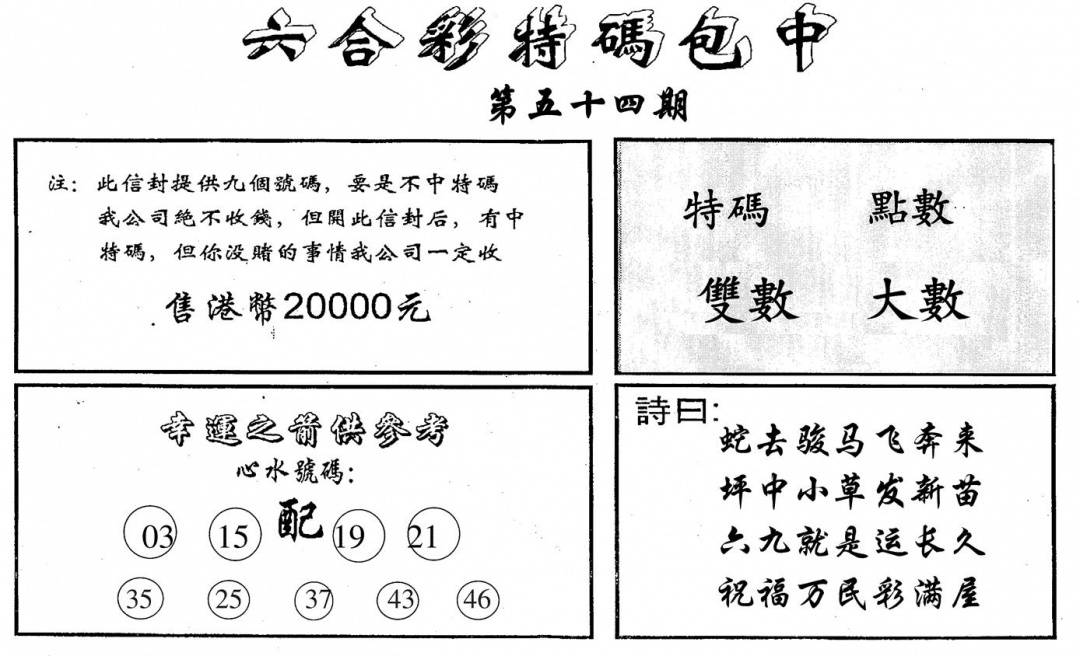 六合彩特碼包中
第五十四期
注：此信封提供九個號碼，要是不中特碼
我公司絕不收錢，但開此信封后，有中
特碼，但你没賭的事情我公司一定收
售港幣20000元
特碼 點數
雙數 大數
幸運之箭供參考
心水號碼：
03 15 配 19 21
35 25 37 43 46
詩曰：
蛇去骏马飞奔来
坪中小草发新苗
六九就是运长久
祝福万民彩满屋